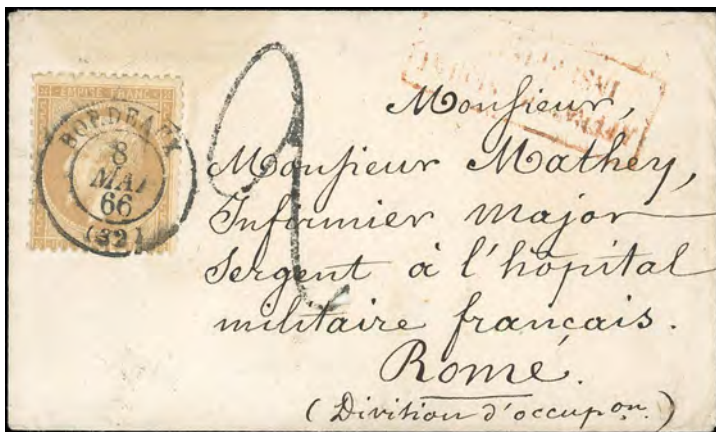 EMPIRE FRANC
BORDEAUX
8
MAI
66
(32)
Monsieur,
Monsieur Mathey,
Infirmier major
Sergent à l'hopital
militaire français.
Rome.
(Division d'occupon.)